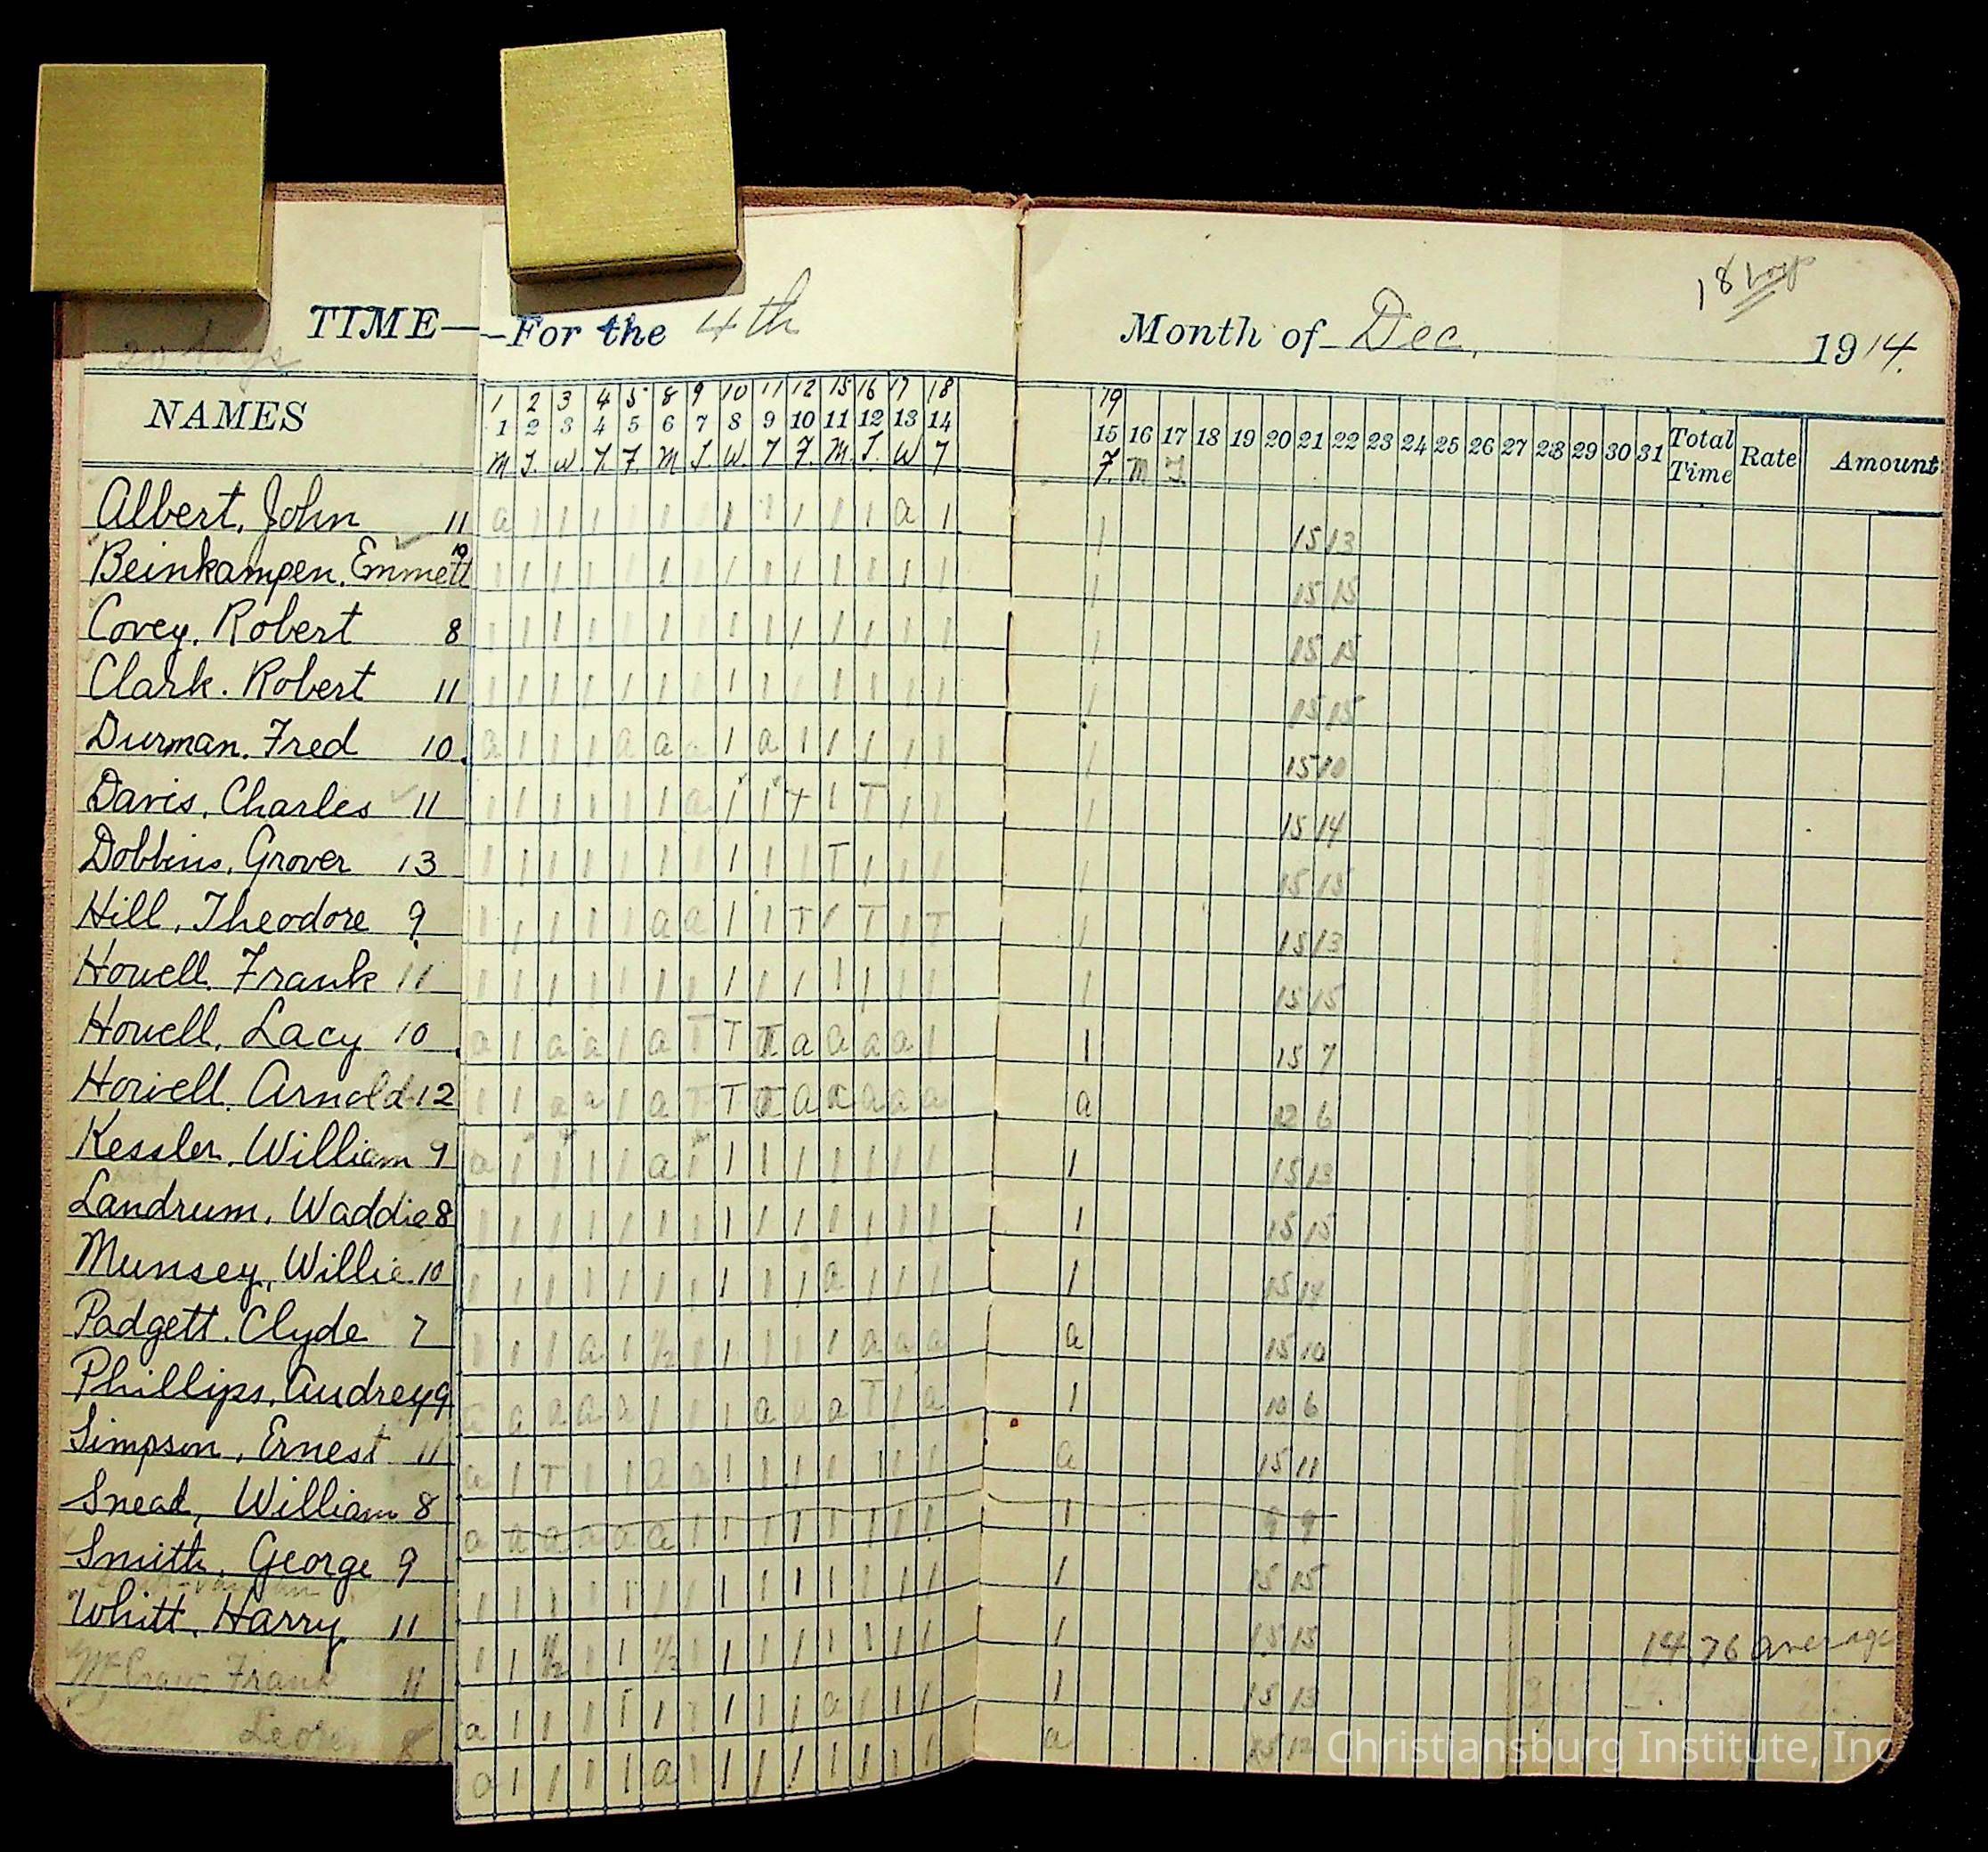 18 boys
20 boys
TIME—For the 4th Month of Dec. 1914.
1 2 3 4 5 8 9 10 11 12 15 16 17 18 19
NAMES 1 2 3 4 5 6 7 8 9 10 11 12 13 14 15 16 17 18 19 20 21 22 23 24 25 26 27 28 29 30 31 Total Time Rate Amount
M T. W. T. F. M T. W. T F. M. T. W T F. M T
Albert, John 11 a 1 1 1 1 1 1 1 1 1 1 1 a 1 1 15 13
Beinkampen, Emmett 10 1 1 1 1 1 1 1 1 1 1 1 1 1 1 1 15 15
Covey, Robert 8 1 1 1 1 1 1 1 1 1 1 1 1 1 1 1 15 15
Clark. Robert 11 1 1 1 1 1 1 1 1 1 1 1 1 1 1 1 15 15
Durman, Fred 10. a 1 1 1 a a a 1 a 1 1 1 1 1 1 15 10
Davis, Charles 11 1 1 1 1 1 1 a 1 1 T 1 T 1 1 1 15 14
Dobbins, Grover 13 1 1 1 1 1 1 1 1 1 1 T 1 1 1 1 15 15
Hill, Theodore 9 1 1 1 1 1 a a 1 1 T 1 T 1 T 1 15 13
Howell, Frank 11 1 1 1 1 1 1 1 1 1 1 1 1 1 1 1 15 15
Howell, Lacy 10 a 1 a a 1 a T T T a a a a 1 1 15 7
Howell, Arnold 12 1 1 a a 1 a T T T a a a a a a 6
Kessler, William 9 a 1 1 1 1 a 1 1 1 1 1 1 1 1 1 15 13
Landrum, Waddie 8 1 1 1 1 1 1 1 1 1 1 1 1 1 1 1 15 15
Munsey, Willie 10 1 1 1 1 1 1 1 1 1 1 a 1 1 1 1 15 14
Padgett, Clyde 7 1 1 1 a 1 1/2 1 1 1 1 1 a a a a 15 10
Phillips, Audrey 9 a a a a a 1 1 1 a a a T 1 a 1 6
Simpson, Ernest 11 a 1 T 1 1 a a 1 1 1 1 1 1 1 a 15 11
Snead, William 8 a a a a a a 1 1 1 1 1 1 1 1 1 9 9
Smith, George 9 1 1 1 1 1 1 1 1 1 1 1 1 1 1 1 15 15
Whitt, Harry 11 1 1 1/2 1 1 1/2 1 1 1 1 1 1 1 1 1 15 15
14.76 average
McCraw, Frank 11 a 1 1 1 1 1 1 1 1 1 a 1 1 1 1 15 13
8 a 1 1 1 1 a 1 1 1 1 1 1 1 1 a 15 12
Christiansburg Institute, Inc